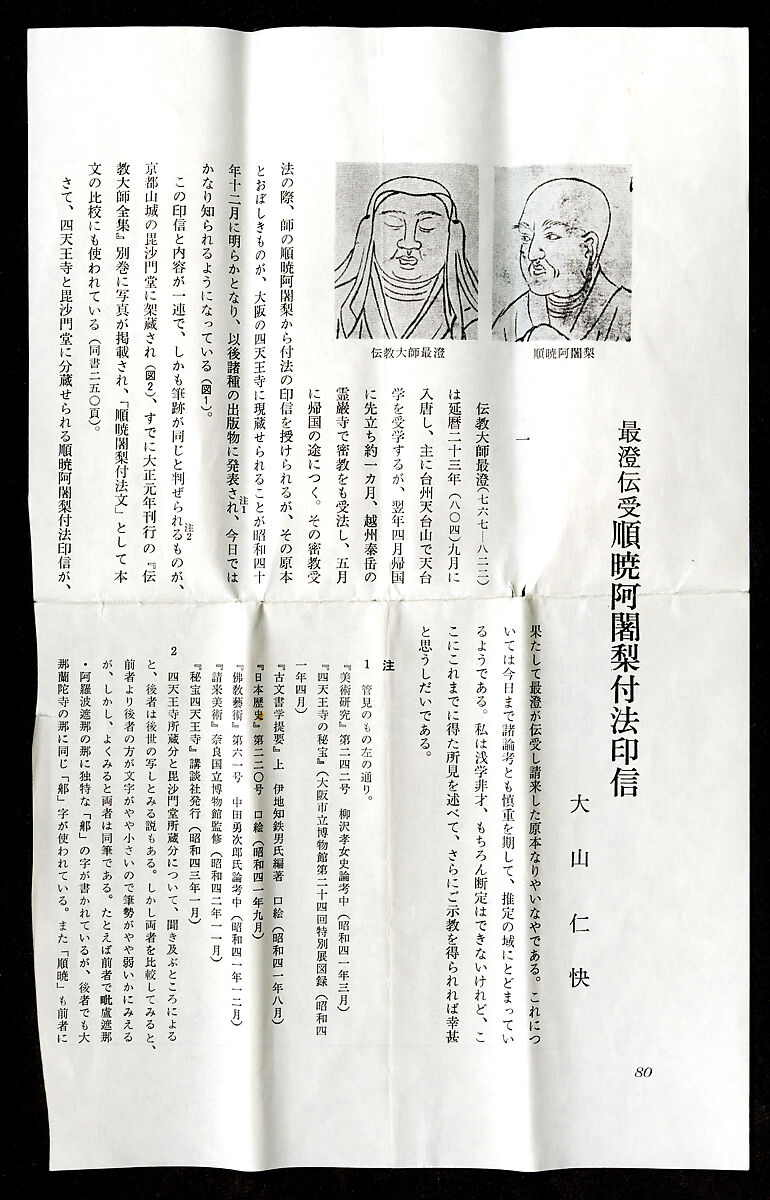 最澄伝受順暁阿闍梨付法印信
大山仁快
順暁阿闍梨
伝教大師最澄
一
伝教大師最澄(七六七—八二二)
は延暦二十三年(八〇四)九月に
入唐し、主に台州天台山で天台
学を受学するが、翌年四月帰国
に先立ち約一カ月、越州泰岳の
霊巌寺で密教をも受法し、五月
に帰国の途につく。その密教受
法の際、師の順暁阿闍梨から付法の印信を授けられるが、その原本
とおぼしきものが、大阪の四天王寺に現蔵せられることが昭和四十
年十二月に明らかとなり、以後諸種の出版物に発表され、注1今日では
かなり知られるようになっている(図1)。
この印信と内容が一連で、しかも筆跡が同じと判ぜられる注2ものが、
京都山城の毘沙門堂に架蔵され(図2)、すでに大正元年刊行の『伝
教大師全集』別巻に写真が掲載され、「順暁闍梨付法文」として本
文の比較にも使われている(同書二五〇頁)。
さて、四天王寺と毘沙門堂に分蔵せられる順暁阿闍梨付法印信が、
果たして最澄が伝受し請来した原本なりやいなやである。これにつ
いては今日まで諸論考とも慎重を期して、推定の域にとどまってい
るようである。私は浅学非才、もちろん断定はできないけれど、こ
こにこれまでに得た所見を述べて、さらにご示教を得られれば幸甚
と思うしだいである。
注
1 管見のもの左の通り。
『美術研究』第二四二号 柳沢孝女史論考中(昭和四一年三月)
『四天王寺の秘宝』(大阪市立博物館第二十四回特別展図録(昭和四
一年四月)
『古文書学提要』上 伊地知鉄男氏編著 口絵(昭和四一年八月)
『日本歴史』第二二〇号 口絵(昭和四一年九月)
『佛教藝術』第六一号 中田勇次郎氏論考中(昭和四一年一二月)
『請来美術』奈良国立博物館監修(昭和四二年一一月)
『秘宝四天王寺』講談社発行(昭和四三年一月)
2 四天王寺所蔵分と毘沙門堂所蔵分について、聞き及ぶところによる
と、後者は後世の写しとみる説もある。しかし両者を比較してみると、
前者より後者の方が文字がやや小さいので筆勢がやや弱いかにみえる
が、しかし、よくみると両者は同筆である。たとえば前者で毗盧遮那
・阿羅波遮那の那に独特な「𨚗」の字が書かれているが、後者でも大
那蘭陀寺の那に同じ「𨚗」字が使われている。また「順暁」も前者に
80